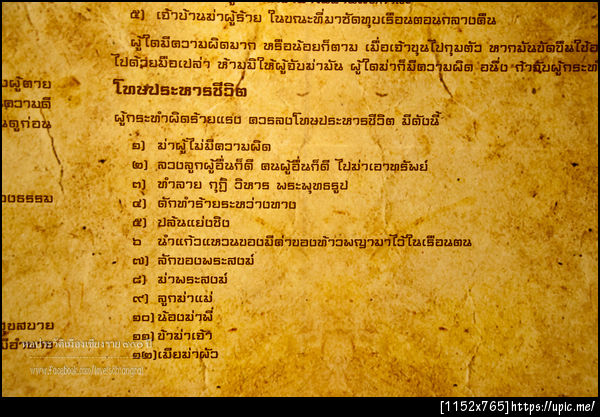 ๕) เจ้าบ้านฆ่าผู้ร้าย ในขณะที่มาชัดหุบเรือนตอนกลางคืน
ผู้ใดมีความผิดมาก หรือน้อยก็ตาม เมื่อเจ้าขุนไปกุมตัว หากมันขัดขืนใช้อ
ไปด้วยมือเปล่า ห้ามมิให้ผู้จับฆ่ามัน ผู้ใดฆ่าก็มีความผิด อนึ่ง กำจับผู้กระทำ
โทษประหารชีวิต
ผู้กระทำผิดร้ายแรง ควรลงโทษประหารชีวิต มีดังนี้
๑) ฆ่าผู้ไม่มีความผิด
๒) ลวงลูกผู้อื่นก็ดี คนผู้อื่นก็ดี ไปฆ่าเอาทรัพย์
๓) ทำลาย กุฏิ วิหาร พระพุทธรูป
๔) ดักทำร้ายระหว่างทาง
๕) ปล้นแย่งชิง
๖ นำแก้วแหวนของมีค่าของท้าวพญามาไว้ในเรือนตน
๗) ลักของพระสงฆ์
๘) ฆ่าพระสงฆ์
๙) ลูกฆ่าแม่
๑๐) น้องฆ่าพี่
๑๑) ข้าฆ่าเจ้า
๑๒) เมียฆ่าผัว
งผู้ตาย
นความดี
นดูก่อน
องธรรม
ขุขสบาย
[1152x765]https://upic.me/